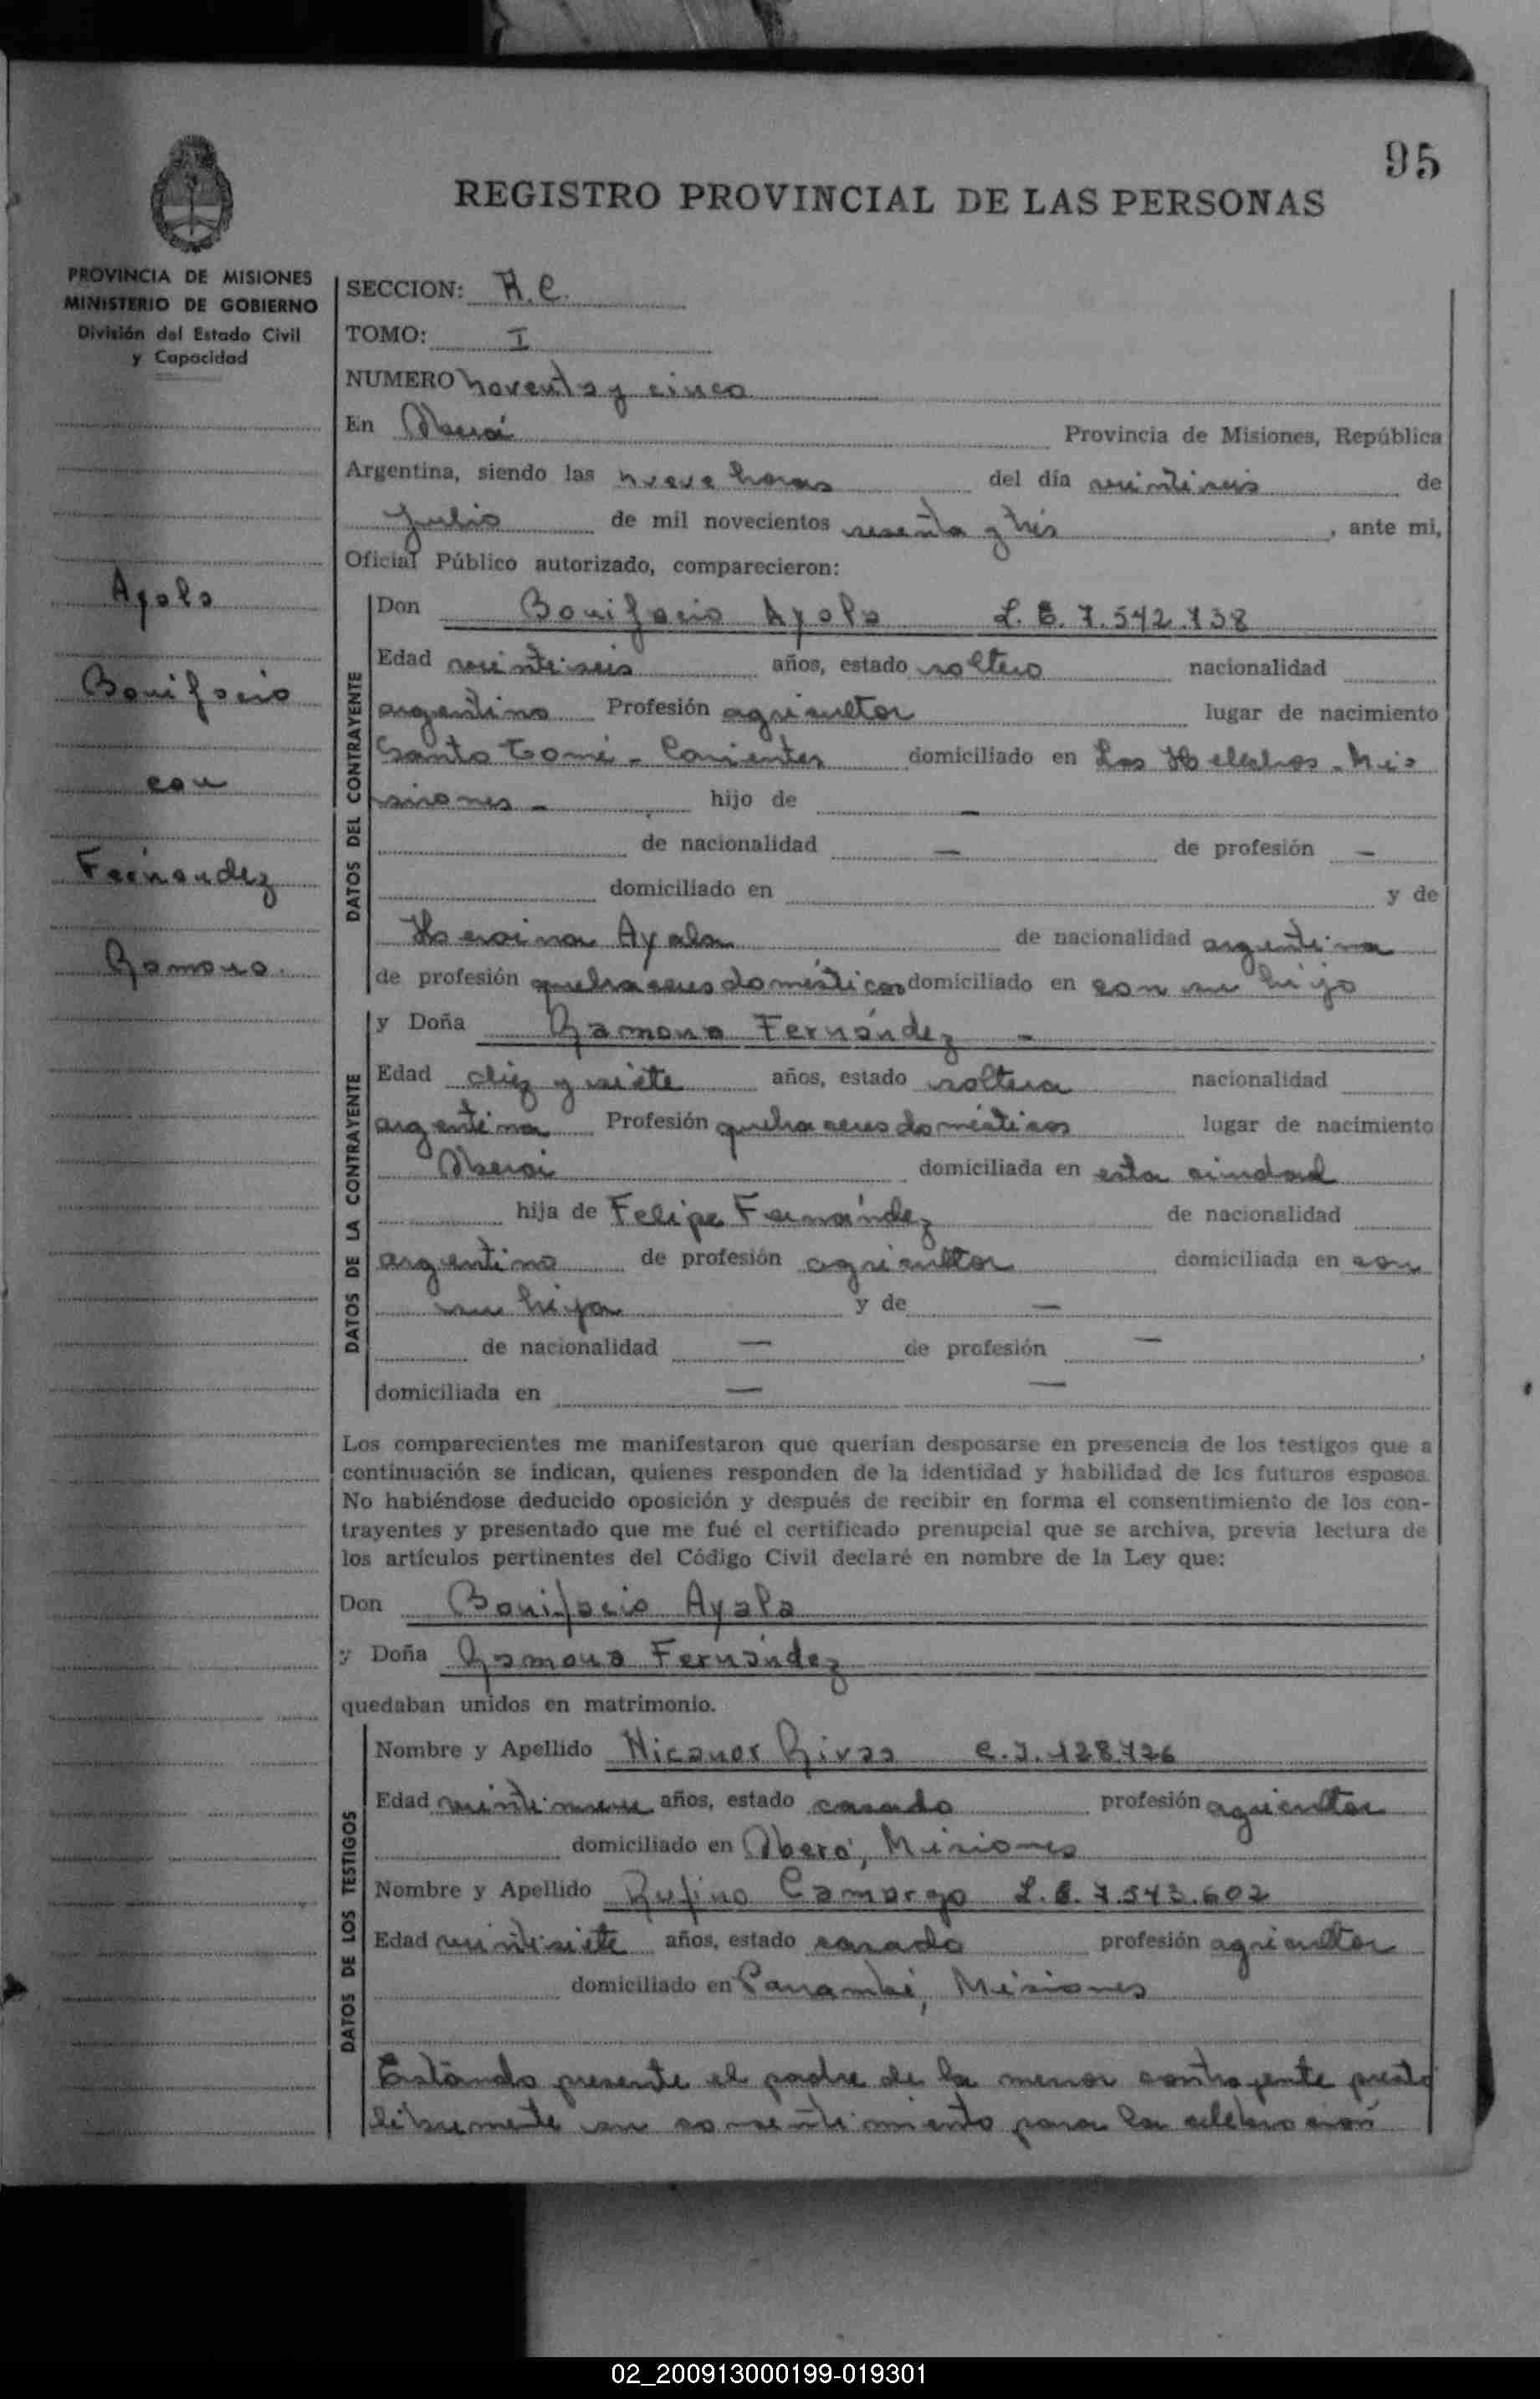 95
REGISTRO PROVINCIAL DE LAS PERSONAS
PROVINCIA DE MISIONES
MINISTERIO DE GOBIERNO
División del Estado Civil
y Capacidad
Ayala
Bonifacio
con
Fernandez
Ramona.
SECCION: R.C.
TOMO: I
NUMERO noventa y cinco
En Oberá Provincia de Misiones, República
Argentina, siendo las nueve horas del día veintiseis de
Julio de mil novecientos sesenta y tres, ante mi,
Oficial Público autorizado, comparecieron:
DATOS DEL CONTRAYENTE
Don Bonifacio Ayala L.E. 7.542.138
Edad veintiseis años, estado soltero nacionalidad
argentino Profesión agricultor lugar de nacimiento
Santo Tomé - Corrientes domiciliado en Los Helechos - Mi-
siones - hijo de -
de nacionalidad - de profesión -
domiciliado en y de
Heroina Ayala de nacionalidad argentina
de profesión quehaceres domésticos domiciliado en con su hijo
DATOS DE LA CONTRAYENTE
y Doña Ramona Fernández -
Edad diez y siete años, estado soltera nacionalidad
argentina Profesión quehaceres domésticos lugar de nacimiento
Oberá domiciliada en esta ciudad
hija de Felipe Fernández de nacionalidad
argentino de profesión agricultor domiciliada en con
su hija y de -
de nacionalidad - de profesión - ,
domiciliada en - -
Los comparecientes me manifestaron que querían desposarse en presencia de los testigos que a
continuación se indican, quienes responden de la identidad y habilidad de los futuros esposos.
No habiéndose deducido oposición y después de recibir en forma el consentimiento de los con-
trayentes y presentado que me fué el certificado prenupcial que se archiva, previa lectura de
los artículos pertinentes del Código Civil declaré en nombre de la Ley que:
Don Bonifacio Ayala
y Doña Ramona Fernández
quedaban unidos en matrimonio.
DATOS DE LOS TESTIGOS
Nombre y Apellido Nicanor Rivas C.I. 128.726
Edad veintinueve años, estado casado profesión agricultor
domiciliado en Oberá, Misiones
Nombre y Apellido Rufino Camargo L.E. 7.543.602
Edad veintisiete años, estado casado profesión agricultor
domiciliado en Panambí, Misiones
Estando presente el padre de la menor contrayente prestó
libremente su consentimiento para la celebración
02_200913000199-019301